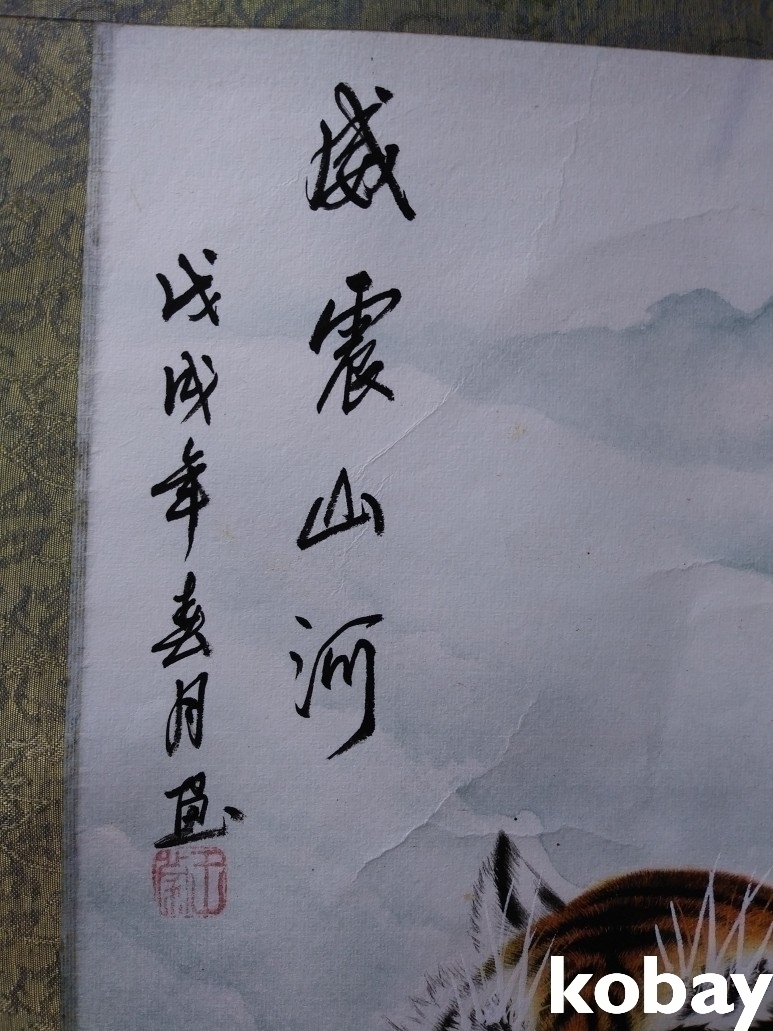 威震山河
戊戌年春月画
kobay